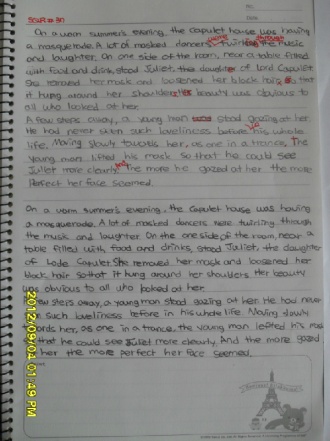 SSUR # 30
On a warm summer's evening, the Capulet house was having
a masquerade. A lot of masked dancers were twirling through the music
and laughter. On one side of the room, near a table filled
with food and drink, stood Juliet, the daughter of Lord Capulet
She removed her mask and loosened her black hair so that
it hung around her shoulders. Her beauty was obvious to
all who looked at her.
A few steps away, a young man stood gazing at her.
He had never seen such loveliness before in his whole
life. Moving slowly towards her, as one in a trance, the
young man lifted his mask so that he could see
Juliet more clearly. And the more he gazed at her the more
perfect her face seemed.
On a warm summer's evening, the Capulet house was having
a masquerade. A lot of masked dancers were twirling through
the music and laughter. On the one side of the room, near a
table filled with, food and drinks, stood Juliet, the daughter
of Capulet. She removed her mask and loosened her
black hair so that it hung around her shoulders. Her beauty
was obvious to all who looked at her.
few steps away, a young man stood gazing at her. He had never
such loveliness before in his whole life. Moving slowly
her, as one in a trance, the young man his mask
that he could see Juliet more clearly. And the more gazed
her the more perfect her face seemed.
2012/09/04 01:49 PM